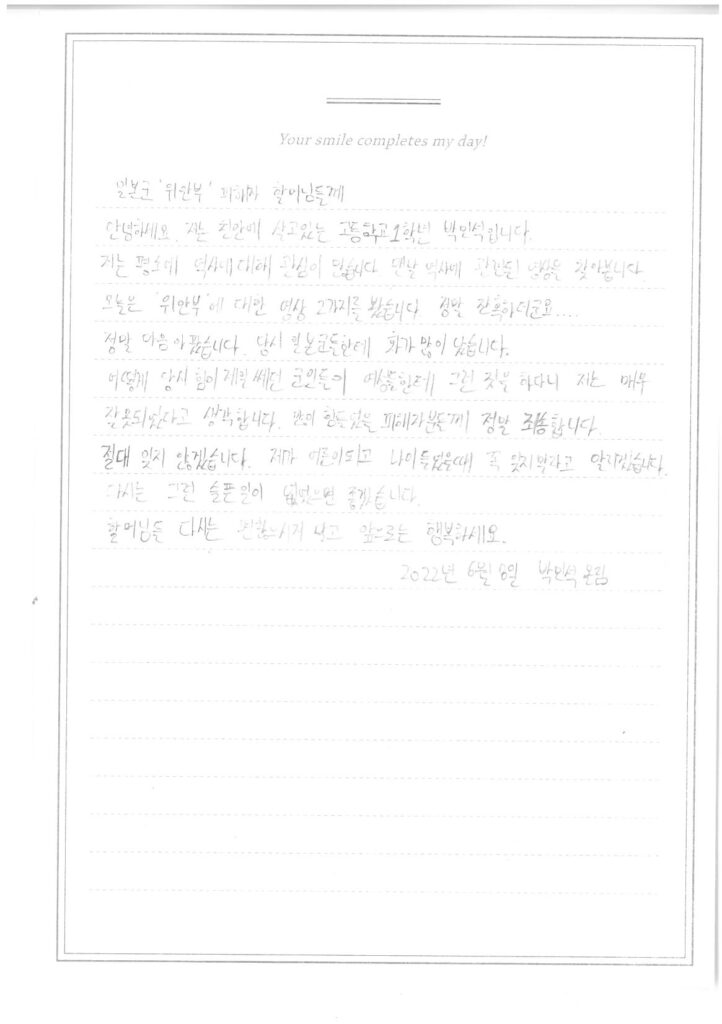 Your smile completes my day!
일본군 '위안부' 피해자 할머님들께
안녕하세요. 저는 천안에 살고있는 고등학교 1학년 박민석입니다.
저는 평소에 역사에 대해 관심이 많습니다 맨날 역사에 관련된 영상을 찾아봅니다
오늘은 '위안부'에 대한 영상 2가지를 봤습니다 정말 잔혹하더군요....
정말 마음아팠습니다. 당시 일본군들한테 화가 많이 났습니다.
어떻게 당시 힘이 제일 쎄던 군인들이 여성들한테 그런 짓을 하다니 저는 매우
잘못되었다고 생각합니다. 많이 힘드셨을 피해자분들께 정말 죄송합니다.
절대 잊지 않겠습니다. 제가 어른이되고 나이 들었을때 꼭 잊지말라고 알리겠습니다.
다시는 그런 슬픈일이 없었으면 좋겠습니다.
할머님들 다시는 앞으로는 행복하세요.
2022년 6월 6일 박민석 올림